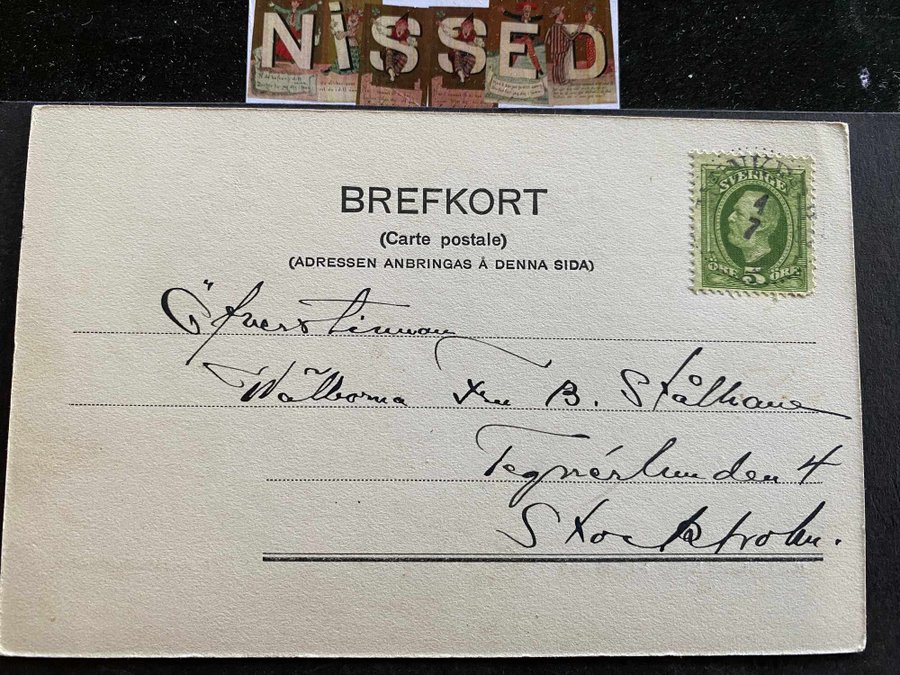 NISSED
BREFKORT
(Carte postale)
(ADRESSEN ANBRINGAS Å DENNA SIDA)
SVERIGE
4
7
ÖRE 5 ÖRE
Öfverstinnan
Wälborna Fru B. Stålhane
Tegnérlunden 4
Stockholm.